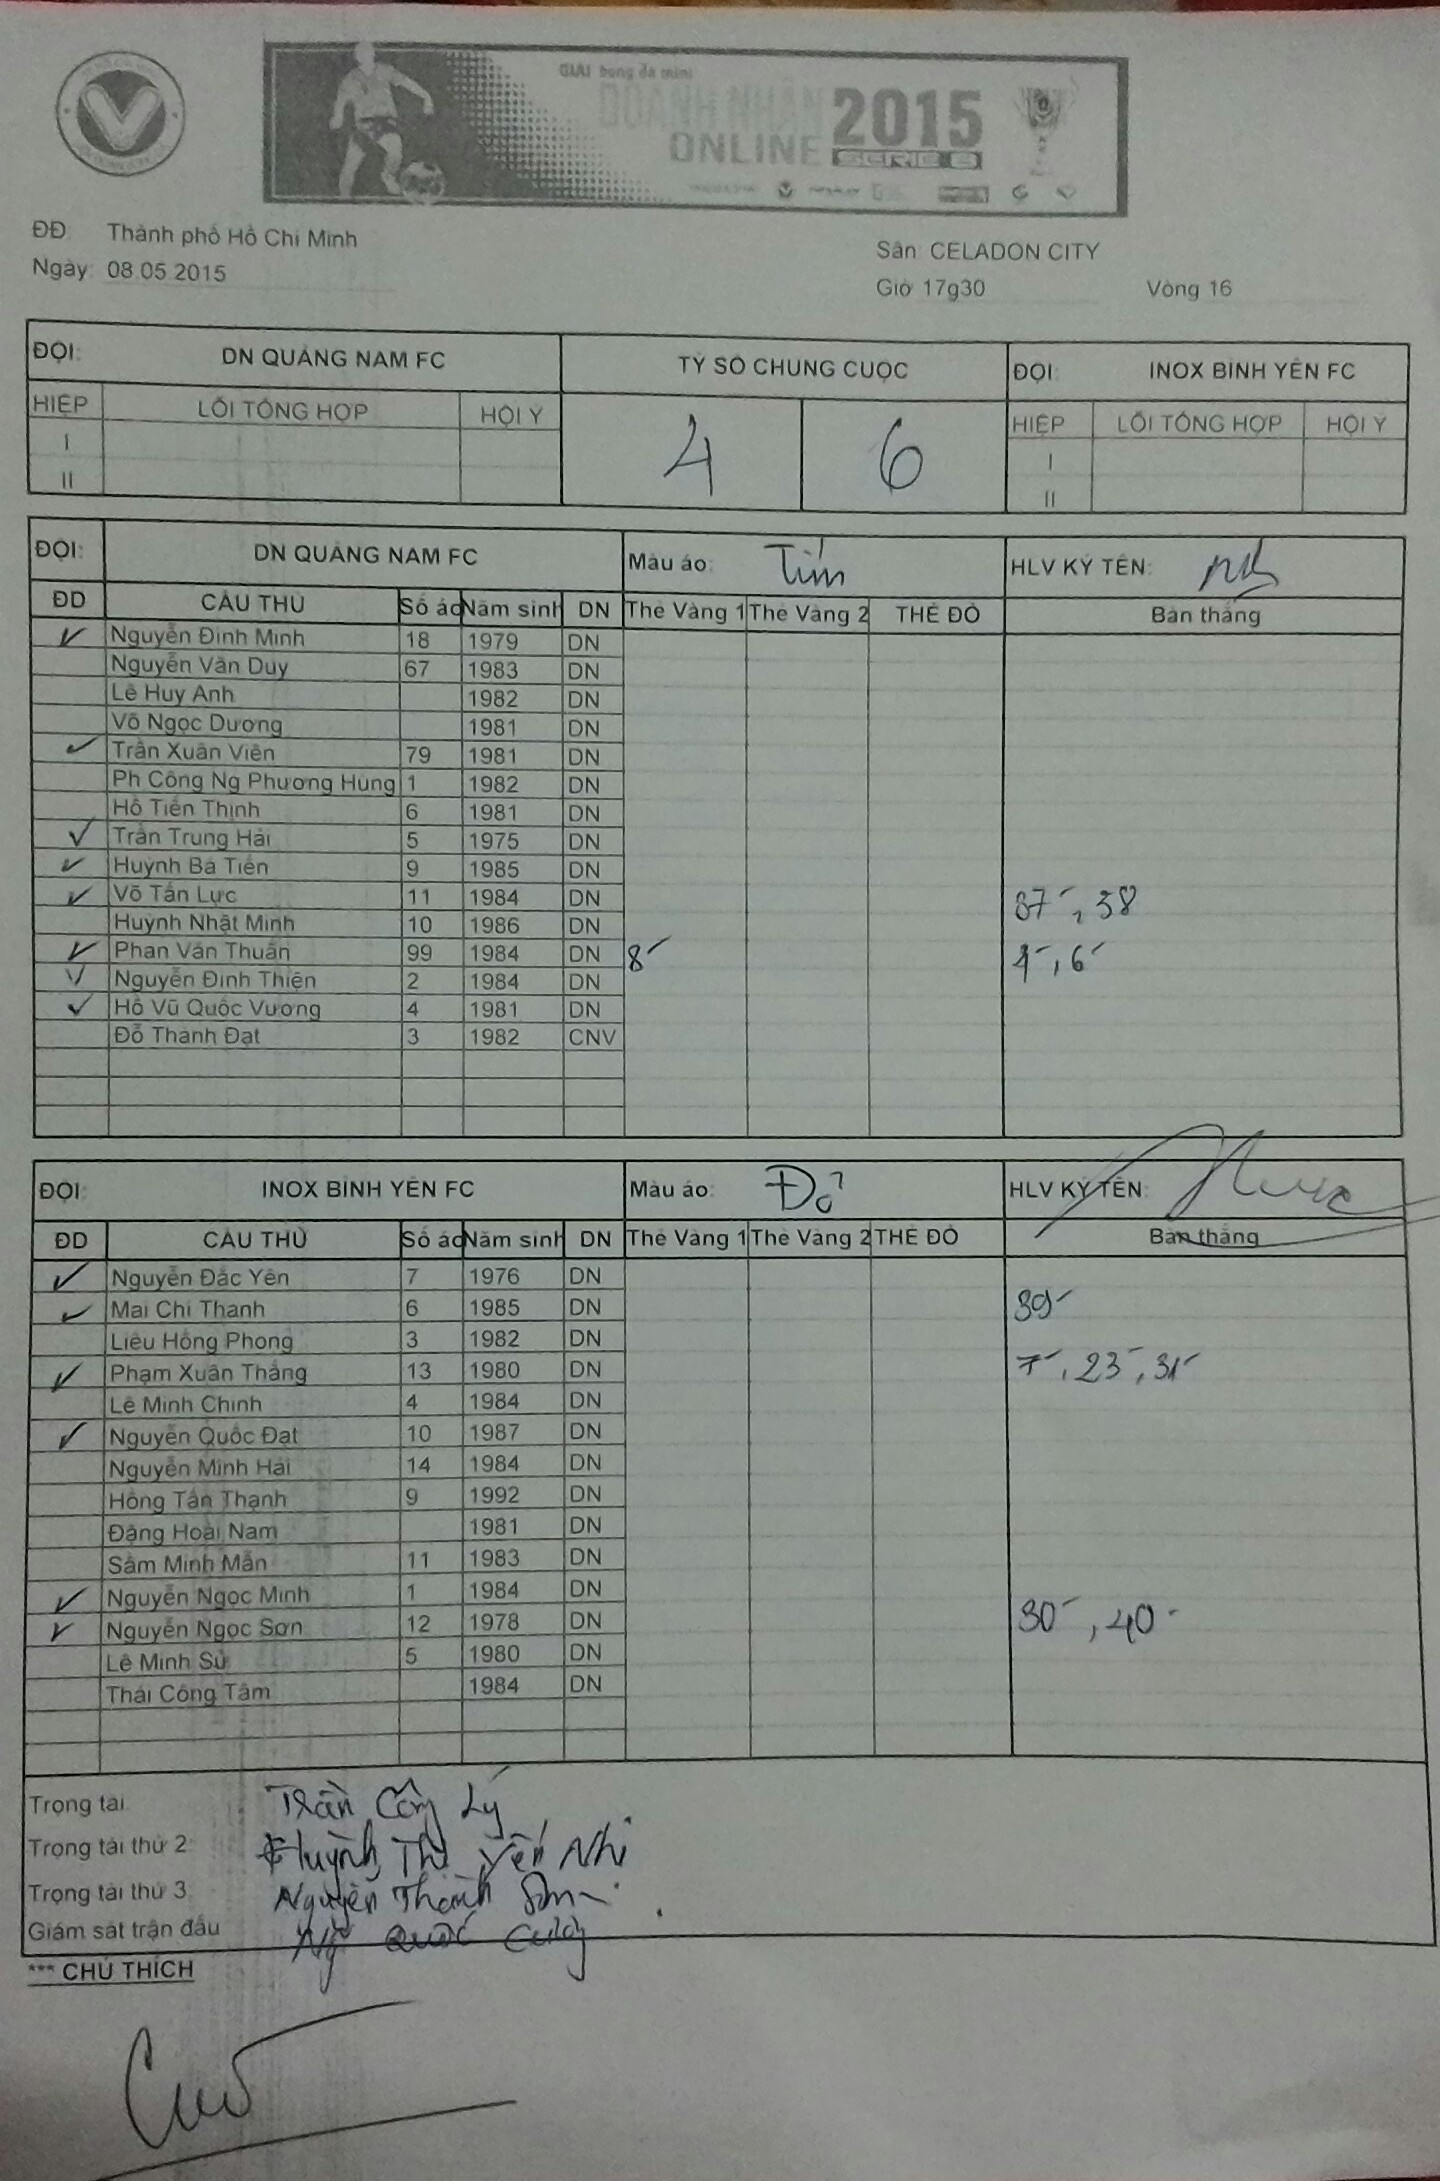 GIẢI bóng đá mini
DOANH NHÂN
ONLINE 2015
SERIE B
ĐĐ: Thành phố Hồ Chí Minh
Sân: CELADON CITY
Ngày: 08.05.2015
Giờ 17g30 Vòng 16
ĐỘI: DN QUẢNG NAM FC TỶ SỐ CHUNG CUỘC ĐỘI: INOX BÌNH YÊN FC
HIỆP LỖI TỔNG HỢP HỘI Ý 4 6 HIỆP LỖI TỔNG HỢP HỘI Ý
I I
II II
ĐỘI: DN QUẢNG NAM FC Màu áo: Tím HLV KÝ TÊN:
ĐD CẦU THỦ Số áo Năm sinh DN Thẻ Vàng 1 Thẻ Vàng 2 THẺ ĐỎ Bàn thắng
✓ Nguyễn Đình Minh 18 1979 DN
Nguyễn Văn Duy 67 1983 DN
Lê Huy Anh 1982 DN
Võ Ngọc Dương 1981 DN
✓ Trần Xuân Viên 79 1981 DN
Ph Công Ng Phương Hùng 1 1982 DN
Hồ Tiến Thịnh 6 1981 DN
✓ Trần Trung Hải 5 1975 DN
✓ Huỳnh Bá Tiến 9 1985 DN
✓ Võ Tấn Lực 11 1984 DN 37', 38
Huỳnh Nhật Minh 10 1986 DN
✓ Phan Văn Thuấn 99 1984 DN 8' 4', 6'
✓ Nguyễn Đình Thiện 2 1984 DN
✓ Hồ Vũ Quốc Vương 4 1981 DN
Đỗ Thành Đạt 3 1982 CNV
ĐỘI: INOX BÌNH YÊN FC Màu áo: Đỏ HLV KÝ TÊN:
ĐD CẦU THỦ Số áo Năm sinh DN Thẻ Vàng 1 Thẻ Vàng 2 THẺ ĐỎ Bàn thắng
✓ Nguyễn Đắc Yên 7 1976 DN
✓ Mai Chí Thanh 6 1985 DN 39'
Liêu Hồng Phong 3 1982 DN
✓ Phạm Xuân Thắng 13 1980 DN 7', 23', 31'
Lê Minh Chính 4 1984 DN
✓ Nguyễn Quốc Đạt 10 1987 DN
Nguyễn Minh Hải 14 1984 DN
Hồng Tấn Thạnh 9 1992 DN
Đặng Hoài Nam 1981 DN
Sầm Minh Mẫn 11 1983 DN
✓ Nguyễn Ngọc Minh 1 1984 DN
✓ Nguyễn Ngọc Sơn 12 1978 DN 30', 40'
Lê Minh Sử 5 1980 DN
Thái Công Tâm 1984 DN
Trọng tài Trần Công Lý
Trọng tài thứ 2: Huỳnh Thị Yến Nhi
Trọng tài thứ 3: Nguyễn Thành Sơn
Giám sát trận đấu Ng Quốc Cường
*** CHÚ THÍCH